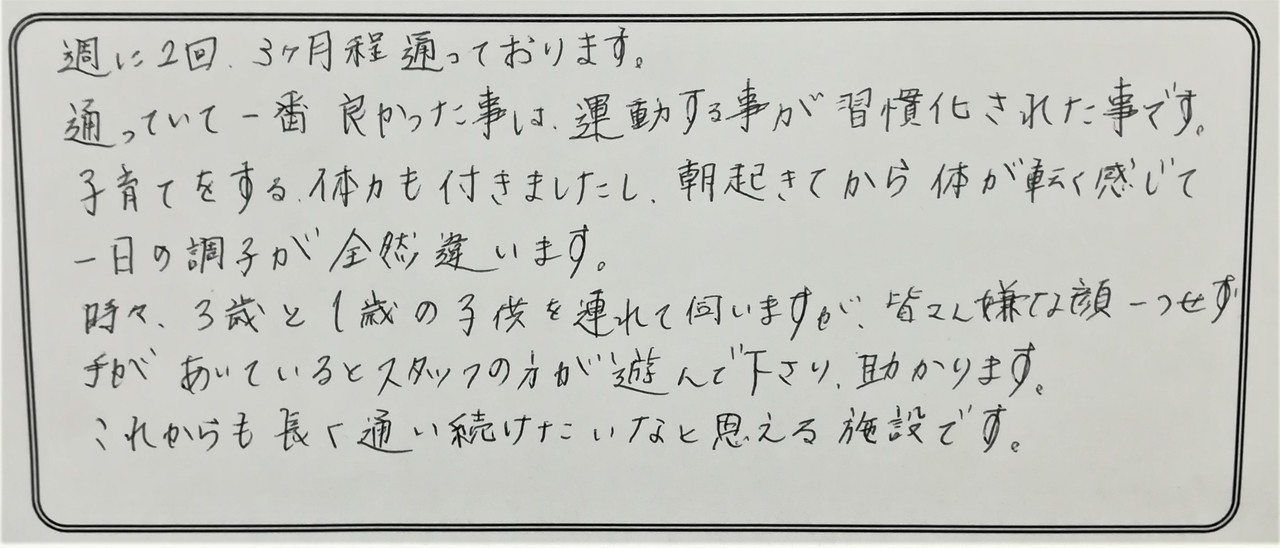 週に2回、3ヶ月程通っております。
通っていて一番良かった事は、運動する事が習慣化された事です。
子育てをする、体力も付きましたし、朝起きてから体が軽く感じて
一日の調子が全然違います。
時々、3歳と1歳の子供を連れて伺いますが、皆さん嫌な顔一つせず
手があいているとスタッフの方が遊んで下さり、助かります。
これからも長く通い続けたいなと思える施設です。